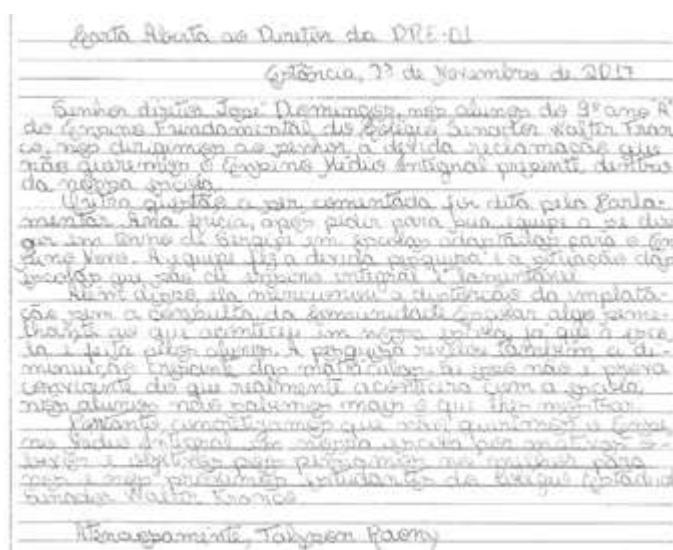 Carta Aberta ao Diretor da DRE-01
Estância, 23 de Novembro de 2017
Senhor diretor José Domingos, nós alunos do 9º ano "A"
do Ensino Fundamental do Colégio Senador Walter Fran-
co, nos dirigimos ao senhor a devida reclamação que
não queremos o Ensino Médio Integral presente dentro
da nossa escola.
Outra questão a ser comentada foi dita pela Parla-
mentar Ana Lúcia, após pedir para sua equipe a se diri-
gir em torno de Sergipe em escolas adaptadas para o En-
sino Novo. A equipe fez a devida pesquisa e a situação das
escolas que são de ensino integral é lamentável.
Além disso, ela mencionou a distorção da implata-
ção sem a consulta da Comunidade Escolar algo seme-
lhante ao que aconteceu em nossa escola, já que a esco-
la é feita pelos alunos. A pesquisa revelou também a di-
minuição crescente das matrículas. Se isso não é prova
convicente do que realmente acontecera com a escola,
nós alunos não sabemos mais o que lhes mostrar.
Portanto, enfatizamos que não queremos o Ensi-
no Médio Integral em nossa escola por motivos
e objetivos pois pensamos no melhor para
nós e nos próximos estudantes do Colégio Estadual
Senador Walter Franco.
Atenciosamente, Talyson Raony